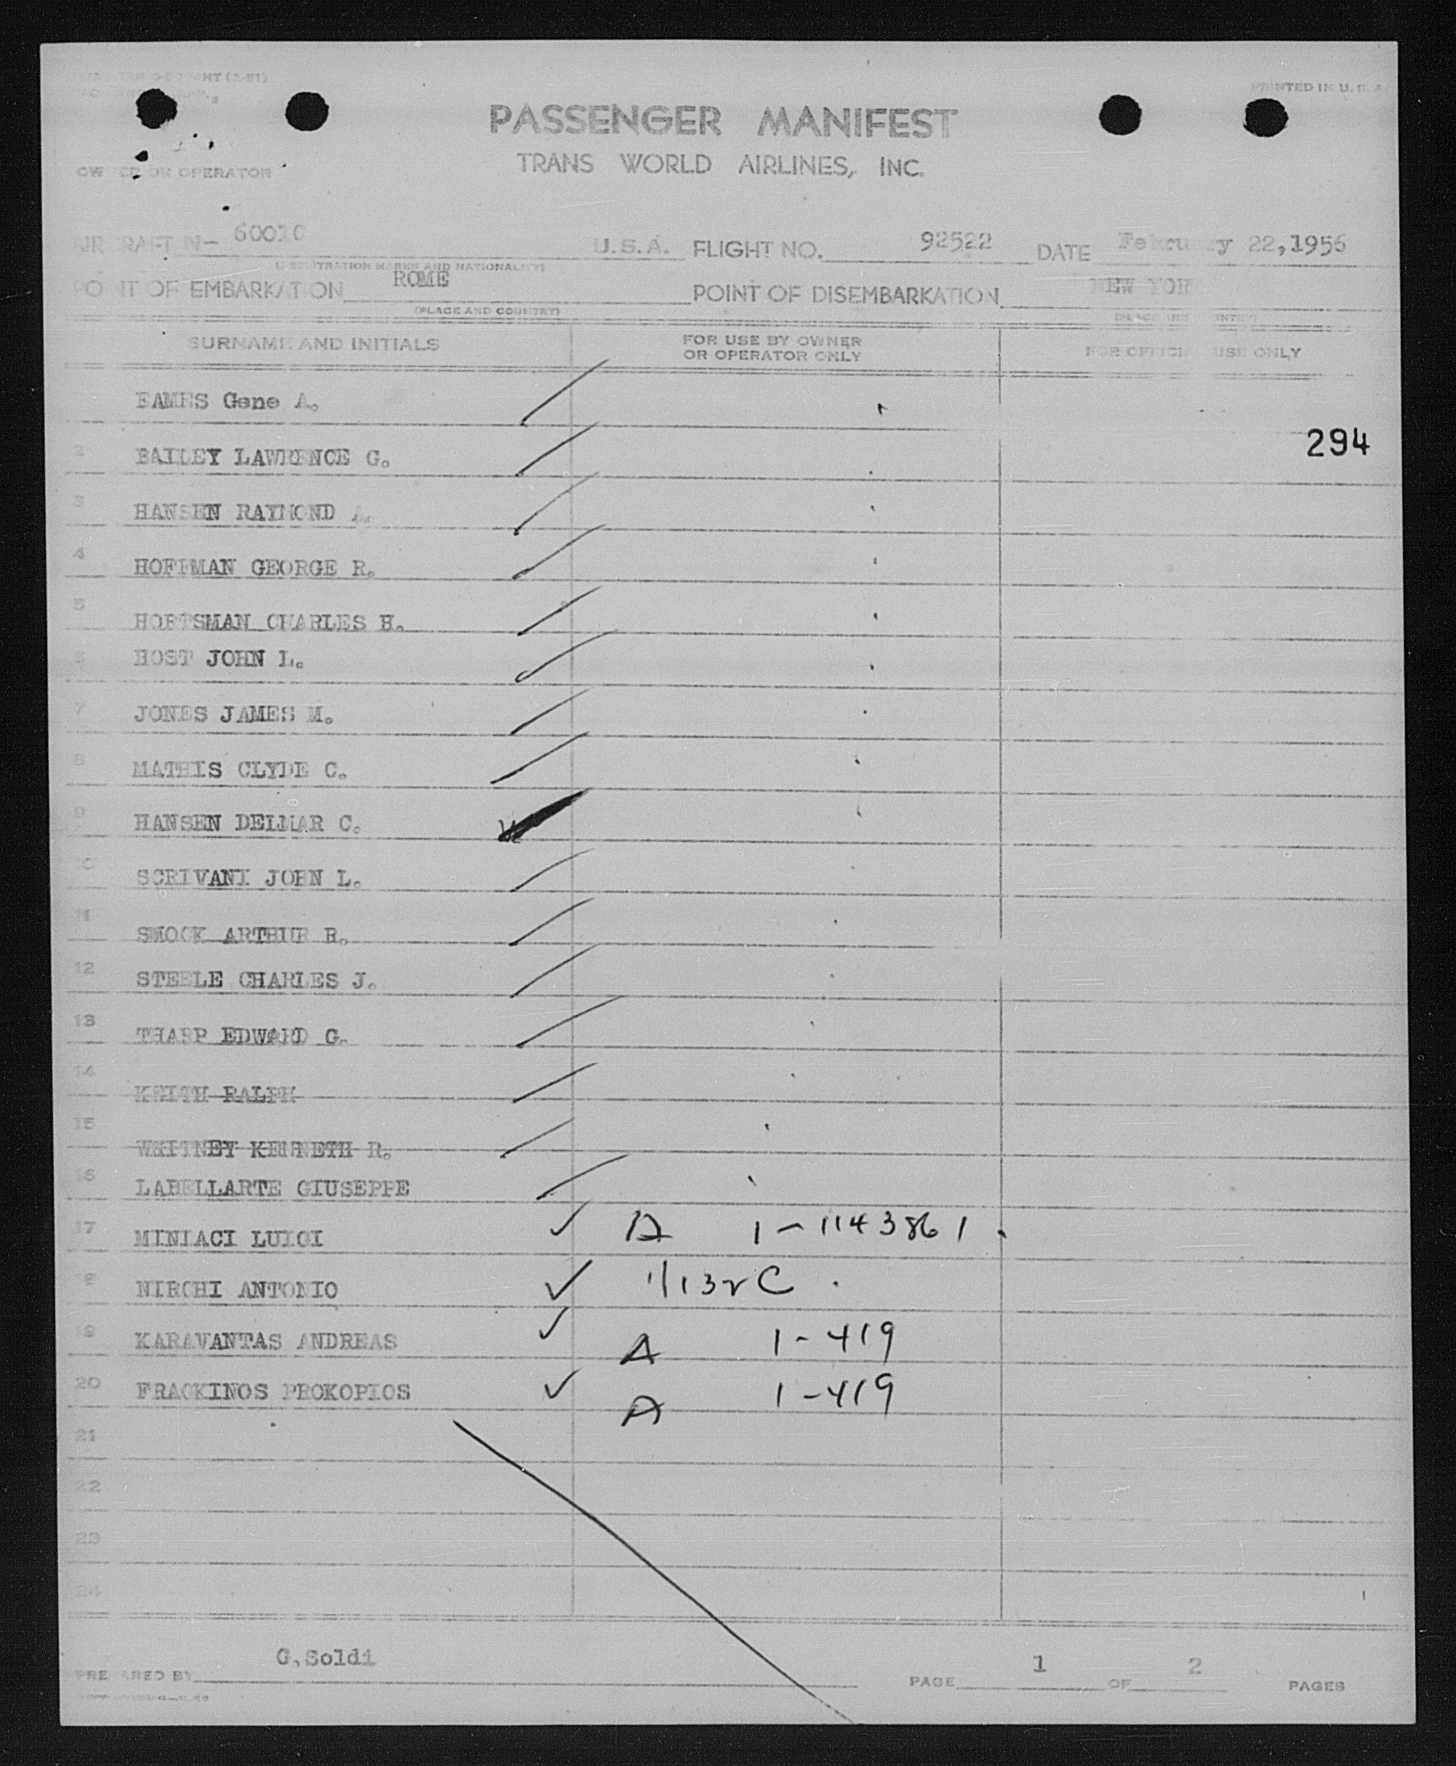 PRINTED IN U.S.A.
PASSENGER MANIFEST
TRANS WORLD AIRLINES, INC.
OWNER OR OPERATOR
AIRCRAFT N- 60010 U.S.A. FLIGHT NO. 92522 DATE February 22,1956
(REGISTRATION MARKS AND NATIONALITY)
POINT OF EMBARKATION ROME POINT OF DISEMBARKATION NEW YORK
(PLACE AND COUNTRY) (PLACE AND COUNTRY)
SURNAME AND INITIALS FOR USE BY OWNER OR OPERATOR ONLY FOR OFFICIAL USE ONLY
EAMES Gene A.
294
2 BAILEY LAWRENCE G.
3 HANSEN RAYMOND A.
4 HOFFMAN GEORGE R.
5 HORTSMAN CHARLES H.
6 HOST JOHN L.
7 JONES JAMES M.
8 MATHIS CLYDE C.
9 HANSEN DELMAR C.
10 SCRIVANI JOHN L.
11 SMOCK ARTHUR R.
12 STEELE CHARLES J.
13 THARP EDWARD G.
14 KEITH RALPH
15 WHITNEY KENNETH R.
16 LABELLARTE GIUSEPPE
17 MINIACI LUIGI A 1-1143861
18 NIRCHI ANTONIO 1/132 C
19 KARAVANTAS ANDREAS A 1-419
20 FRACKINOS PROKOPIOS A 1-419
21
22
23
24
PREPARED BY G.Soldi PAGE 1 OF 2 PAGES